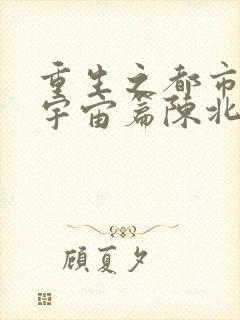 重生之都市
宇宙篇陈北
顾夏夕